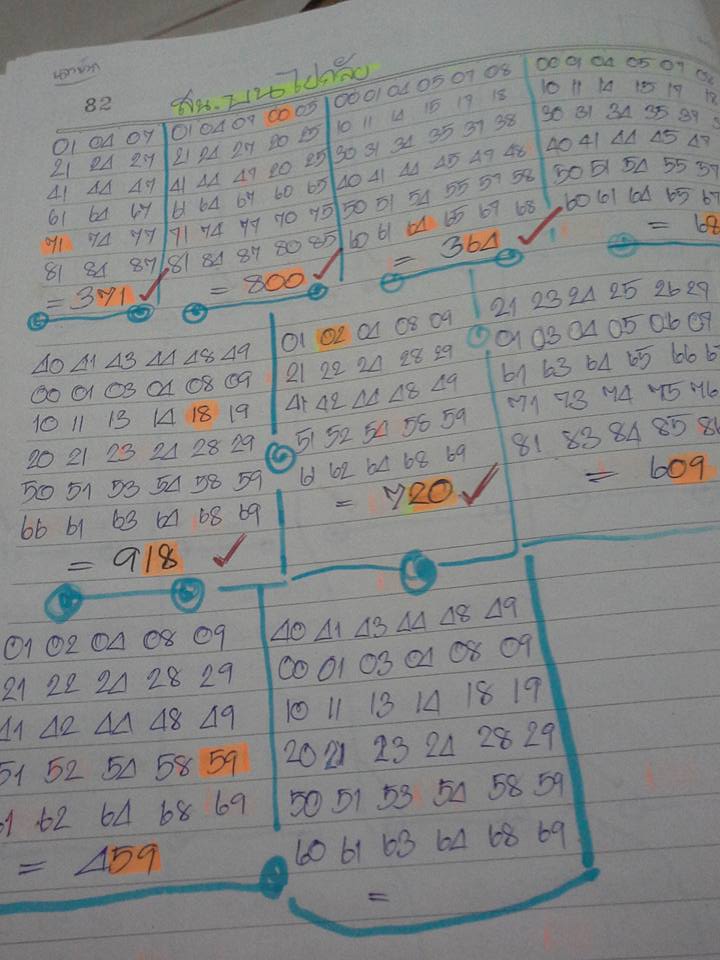 82
01 04 07
21 24 27
41 44 47
61 64 67
71 74 77
81 84 87
= 371
01 04 07 00 05
21 24 27 20 25
41 44 47 20 25
61 64 67 60 65
71 74 77 70 75
81 84 87 80 85
= 800
00 01 04 05 07 08
10 11 14 15 17 18
30 31 34 35 37 38
40 41 44 45 47 48
50 51 54 55 57 58
60 61 64 65 67 68
= 364
00 01 04 05 07
10 11 14 15 17
30 31 34 35 37
40 41 44 45 47
50 51 54 55 57
60 61 64 65 67
= 68
40 41 43 44 48 49
00 01 03 04 08 09
10 11 13 14 18 19
20 21 23 24 28 29
50 51 53 54 58 59
66 61 63 64 68 69
= 918
01 02 04 08 09
21 22 24 28 29
41 42 44 48 49
51 52 54 58 59
61 62 64 68 69
= 720
21 23 24 25 26 29
01 03 04 05 06 09
61 63 64 65 66 67
71 73 74 75 76
81 83 84 85 86
= 609
01 02 04 08 09
21 22 24 28 29
41 42 44 48 49
51 52 54 58 59
61 62 64 68 69
= 459
40 41 43 44 48 49
00 01 03 04 08 09
10 11 13 14 18 19
20 21 23 24 28 29
50 51 53 54 58 59
60 61 63 64 68 69
=